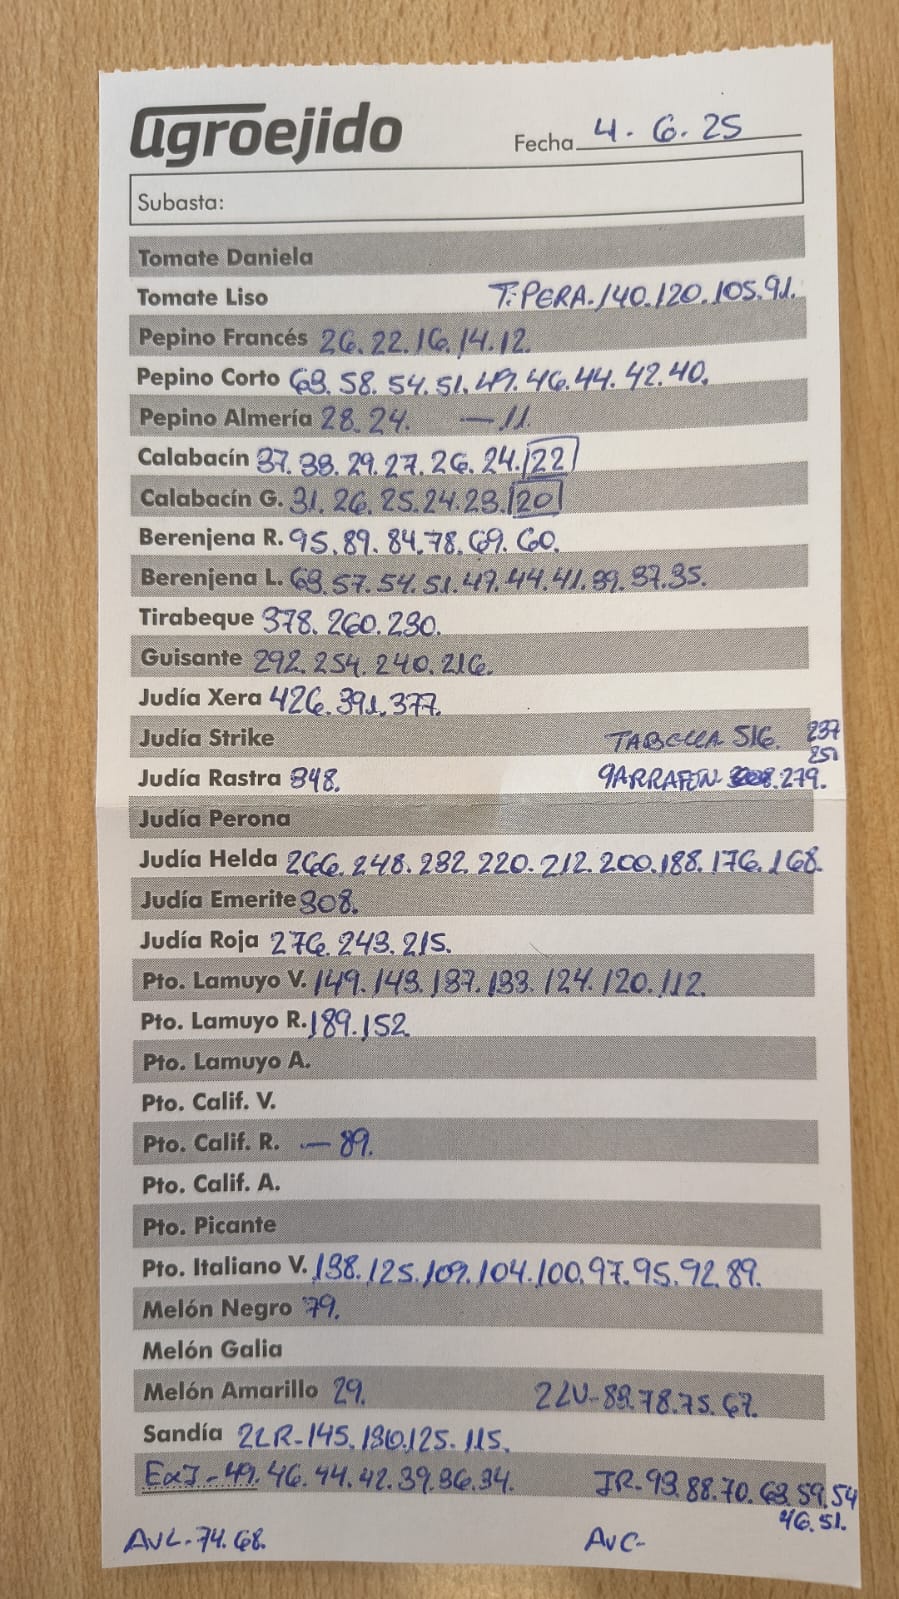 agroejido
Fecha 4. 6. 25
Subasta:
Tomate Daniela
Tomate Liso T. PERA. 140. 120. 105. 91.
Pepino Francés 26. 22. 16. 14. 12.
Pepino Corto 63. 58. 54. 51. 49. 46. 44. 42. 40.
Pepino Almería 28. 24. — 11.
Calabacín 37. 33. 29. 27. 26. 24. 22
Calabacín G. 31. 26. 25. 24. 23. 20
Berenjena R. 95. 89. 84. 78. 69. 60.
Berenjena L. 63. 57. 54. 51. 47. 44. 41. 39. 37. 35.
Tirabeque 378. 260. 230.
Guisante 292. 254. 240. 216.
Judía Xera 426. 391. 377.
Judía Strike TABELLA 516. 237
251
Judía Rastra 348. GARRAFON 279.
Judía Perona
Judía Helda 266. 248. 232. 220. 212. 200. 188. 176. 168.
Judía Emerite 308.
Judía Roja 276. 243. 215.
Pto. Lamuyo V. 149. 143. 137. 133. 124. 120. 112.
Pto. Lamuyo R. 189. 152
Pto. Lamuyo A.
Pto. Calif. V.
Pto. Calif. R. — 89.
Pto. Calif. A.
Pto. Picante
Pto. Italiano V. 138. 125. 109. 104. 100. 97. 95. 92. 89.
Melón Negro 79.
Melón Galia
Melón Amarillo 29. 2LV- 83. 78. 75. 67.
Sandía 2LR- 145. 130. 125. 115.
ExJ - 49. 46. 44. 42. 39. 36. 34. JR- 93. 88. 70. 63. 59. 54
46. 51.
AVL- 74. 68. AVC-